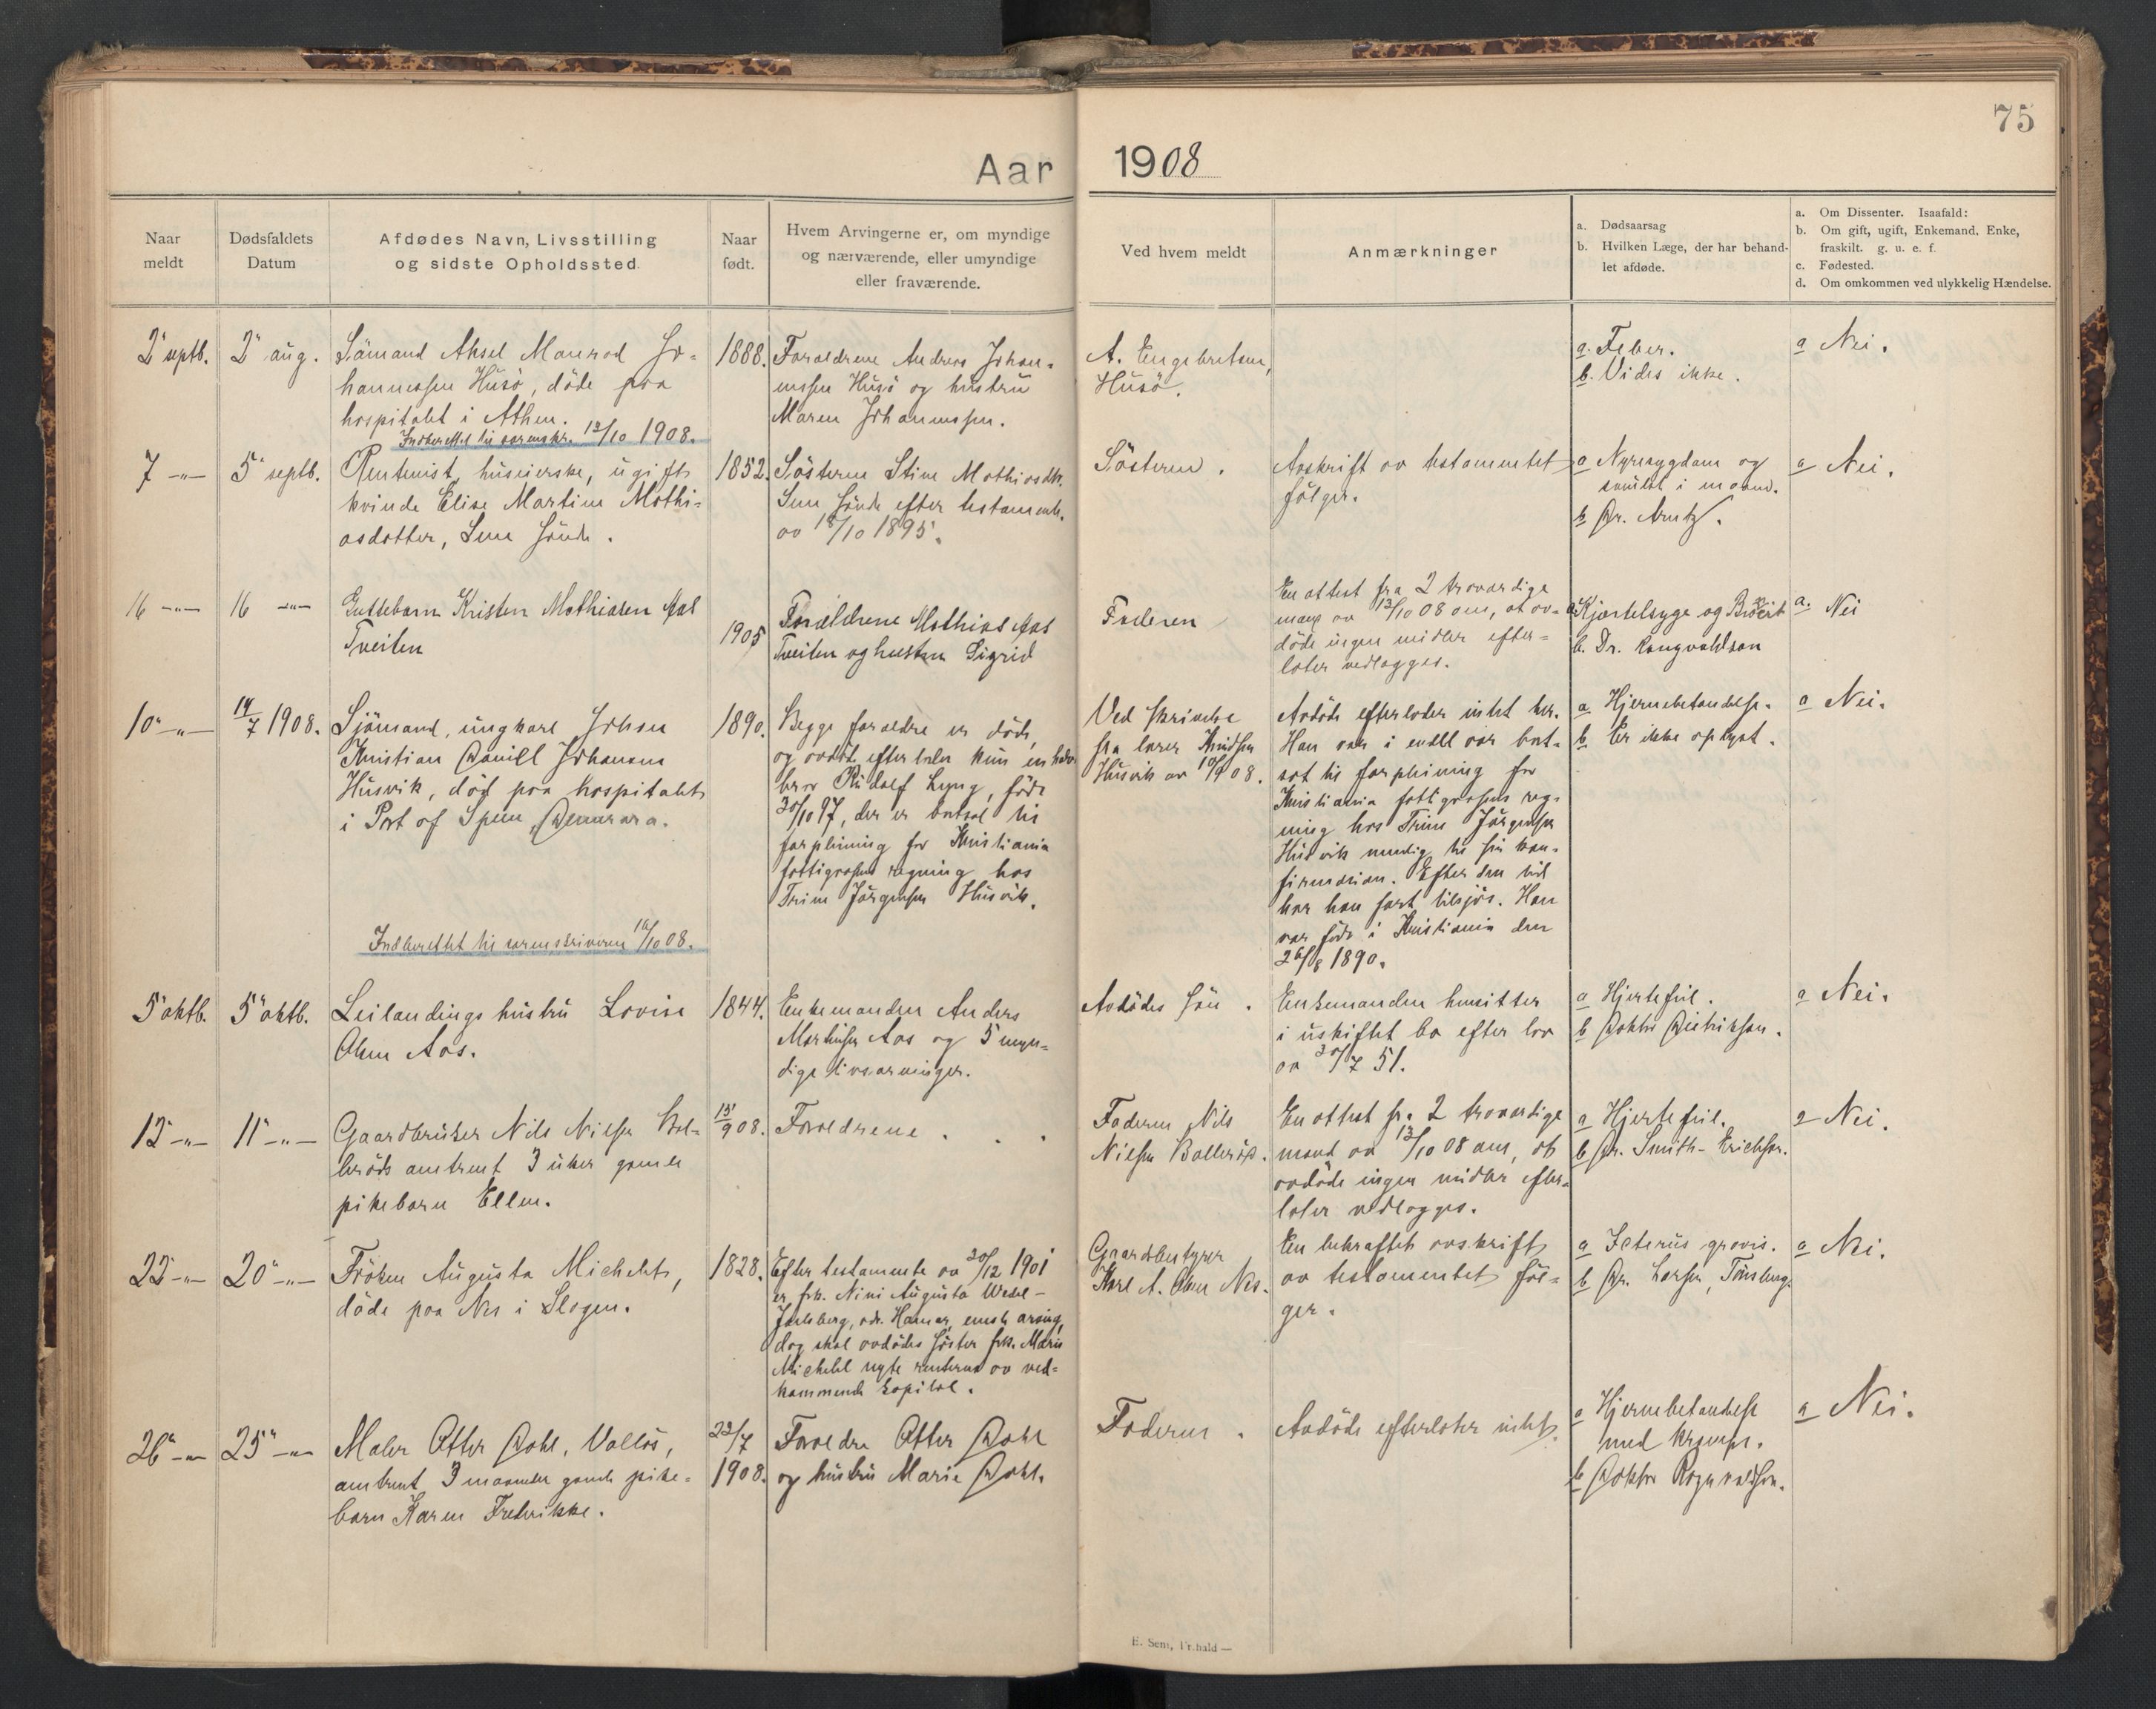 75
Aar 1908
Naar
meldt
Dødsfaldets
Datum
Afdødes Navn, Livsstilling
og sidste Opholdssted
Naar
født.
Hvem Arvingerne er, om myndige
og nærværende, eller umyndige
eller fraværende.
Ved hvem meldt
Anmærkninger
a. Dødsaarsag
b. Hvilken Læge, der har behand-
let afdøde.
a. Om Dissenter. Isaafald:
b. Om gift, ugift, Enkemand, Enke,
fraskilt. g. u. e. f.
c. Fødested.
d. Om omkommen ved ulykkelig Hændelse.
2 septb.
2 aug.
Sömand Aksel Monrad Jo-
hannessen Husö, döde paa
hospitalet i Athen.
Indberettet til sorenskr. 12/10 1908.
1888.
Forældrene Andreas Johan-
nessen Husö og hustru
Maren Johannessen.
A. Engebretsen,
Husö.
a. Feber.
b. Vides ikke.
a Nei.
7 -"-
5 septb.
Rentenist, huseierske, ugift
kvinde Elise Martine Mathi-
asdatter, Sem söndre.
1852.
Sösteren Stine Mathiasdtr.
Sem söndre efter testamente
av 18/10 1895.
Sösteren.
Avskrift av testamentet
fölger.
a Nyresygdom og
svulst i maven.
b Dr. Arntz.
a Nei.
16 -"-
16 -"-
Guttebarn Kristen Mathiasen Aas
Tveiten
1905
Forældrene Mathias Aas
Tveiten og hustru Sigrid
Faderen
En attest fra 2 troværdige
mænd av 13/10 08 om, at av-
döde ingen midler efter-
later vedlægges.
a. Kjertelsyge og
b. Dr. Rangvaldson
a. Nei
10 -"-
14/7 1908.
Sjömand, ungkarl Johan
Kristian Daniel Johansen
Husvik, död paa hospitalet
i Port of Spein, Demerara.
Indberettet til sorenskriveren 12/10 08.
1890.
Begge forældre er döde,
og avdöde efterlater kun en halv-
bror Rudolf Lyng, födt
30/10 97, der er bortsat til
forpleining for Kristiania
fattigvæsens regning hos
Trine Jörgensen Husvik.
Ved skrivelse
fra lærer Knudsen
Husvik av 10/9 08.
Avdöde efterlader intet her.
Han var i endel aar bort-
sat til forpleining for
Kristiania fattigvæsens reg-
ning hos Trine Jörgensen
Husvik nemlig til sin kon-
firmasion. Efter den tid
har han faret tilsjös. Han
var födt i Kristiania den
26/8 1890.
a Hjernebetændelse.
b Er ikke oplyst.
a Nei.
5 oktb.
5 oktb.
Leilendings hustru Lovise
Olsen Aas.
1844.
Enkemanden Anders
Mathisen Aas og 5 myn-
dige livsarvinger.
Avdödes sön.
Enkemanden hensitter
i uskiftet bo efter lov
av 30/7 51.
a Hjertefeil.
b Doktor Diedrikson.
a Nei.
12 -"-
11 -"-
Gaardbruker Nils Nilsen Bol-
leröds omtrent 3 uker gamle
pikebarn Ellen.
15/9 08.
Forældrene.
Faderen Nils
Nilsen Bolleröd.
En attest fra 2 troværdige
mænd av 13/10 08 om, at
avdöde ingen midler efter-
later vedlægges.
a Hjertefeil.
b Dr. Smith-Erichsen.
a Nei.
22 -"-
20 -"-
Fröken Augusta Michelet,
döde paa Nes i Slagen.
1828.
Efter testamente av 20/12 1901
er frk. Nini Augusta Wedel-
Jarlsberg, adr. Hamar, eneste arving,
dog skal avdödes söster frk. Marie
Michelet nyte renterne av ved-
kommende kapital.
Gaardbestyrer
Karl A. Olsen Nes.
En bekræftet avskrift
av testamentet föl-
ger.
a Icterus gravis.
b Dr. Larsen, Tönsberg.
a Nei.
26 -"-
25 -"-
Maler Otter Dahl, Vallös,
omtrent 3 maaneder gamle pike-
barn Karen Fredrikke.
22/7
1908.
Forældre Otter Dahl
og hustru Marie Dahl.
Faderen.
Avdöde efterlater intet.
a Hjernebetændelse
med krampe.
b Doktor Rognvaldson.
a Nei.
E. Sem, Fr.hald —